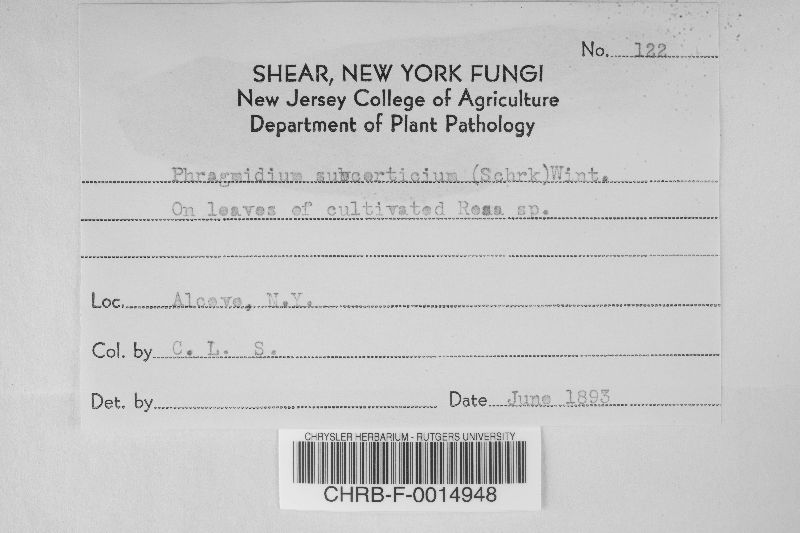 No. 122
SHEAR, NEW YORK FUNGI
New Jersey College of Agriculture
Department of Plant Pathology
Phragmidium subcorticium (Schrk)Wint.
On leaves of cultivated Rosa sp.
Loc. Alcove, N.Y.
Col. by C. L. S.
Det. by
Date June 1893
CHRYSLER HERBARIUM - RUTGERS UNIVERSITY
CHRB-F-0014948